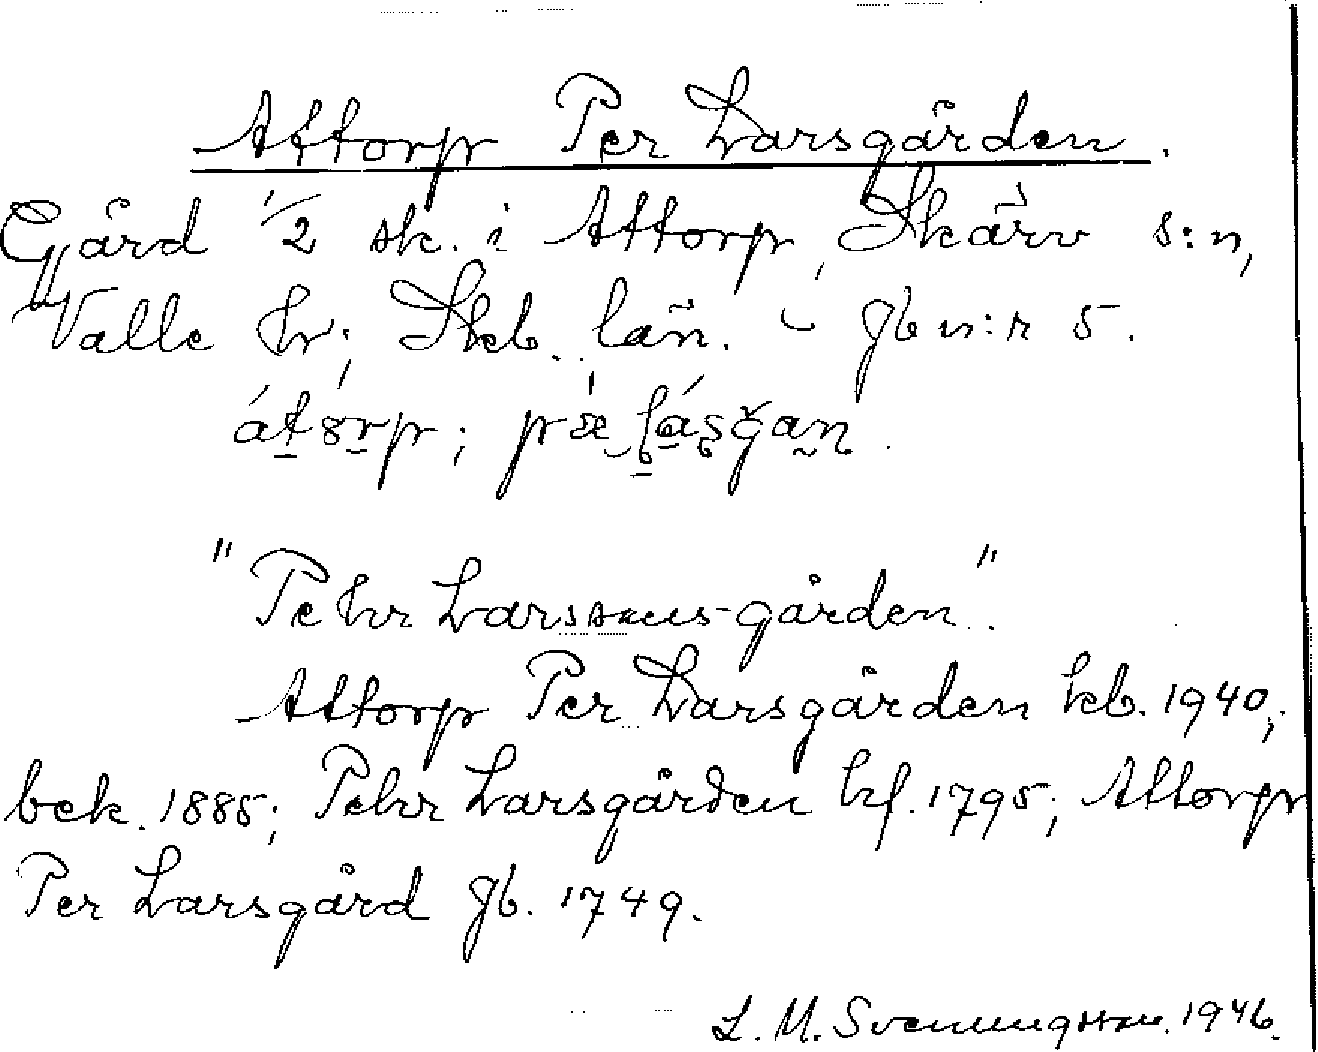 Attorp Per Larsgården.
Gård 1/2 sk. i Attorp, Skärv s:n,
Valle hr; Skb. län. gb n:r 5.
átorp;
"Pehr Larssons-gården".
Attorp Per Larsgården kb. 1940;
bek. 1885; Pehr Larsgården hf. 1795; Attorp
Per Larsgård gb. 1749.
L. M. Svenungsson. 1946.